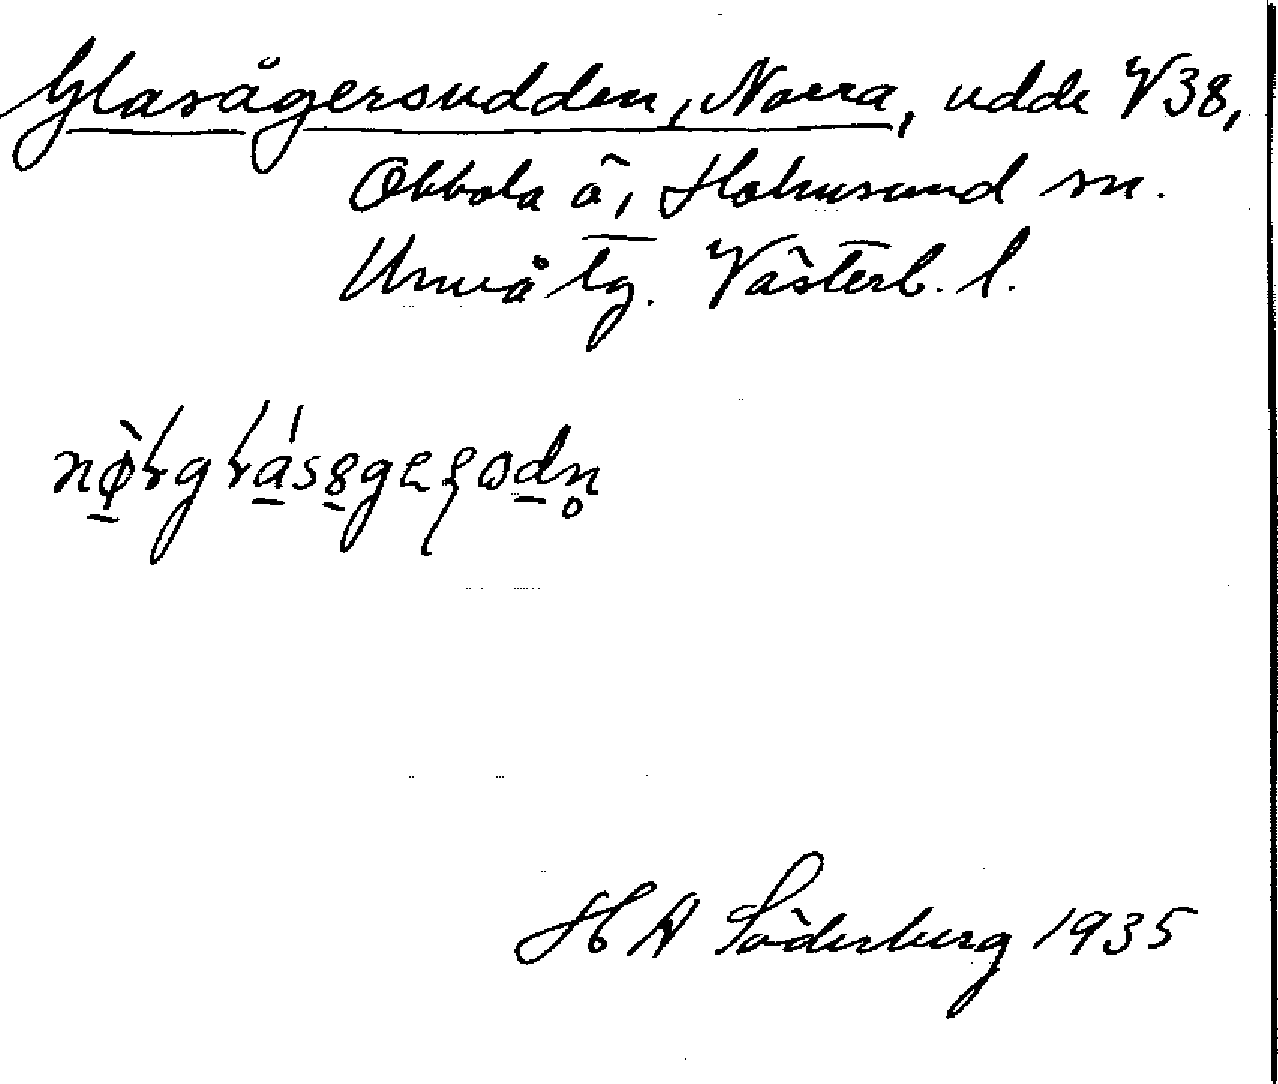 Glasågersudden, Norra, udde V38,
Obbola ö, Holmsund sn.
Umeå tg. Västerb. l.
H A Söderberg 1935